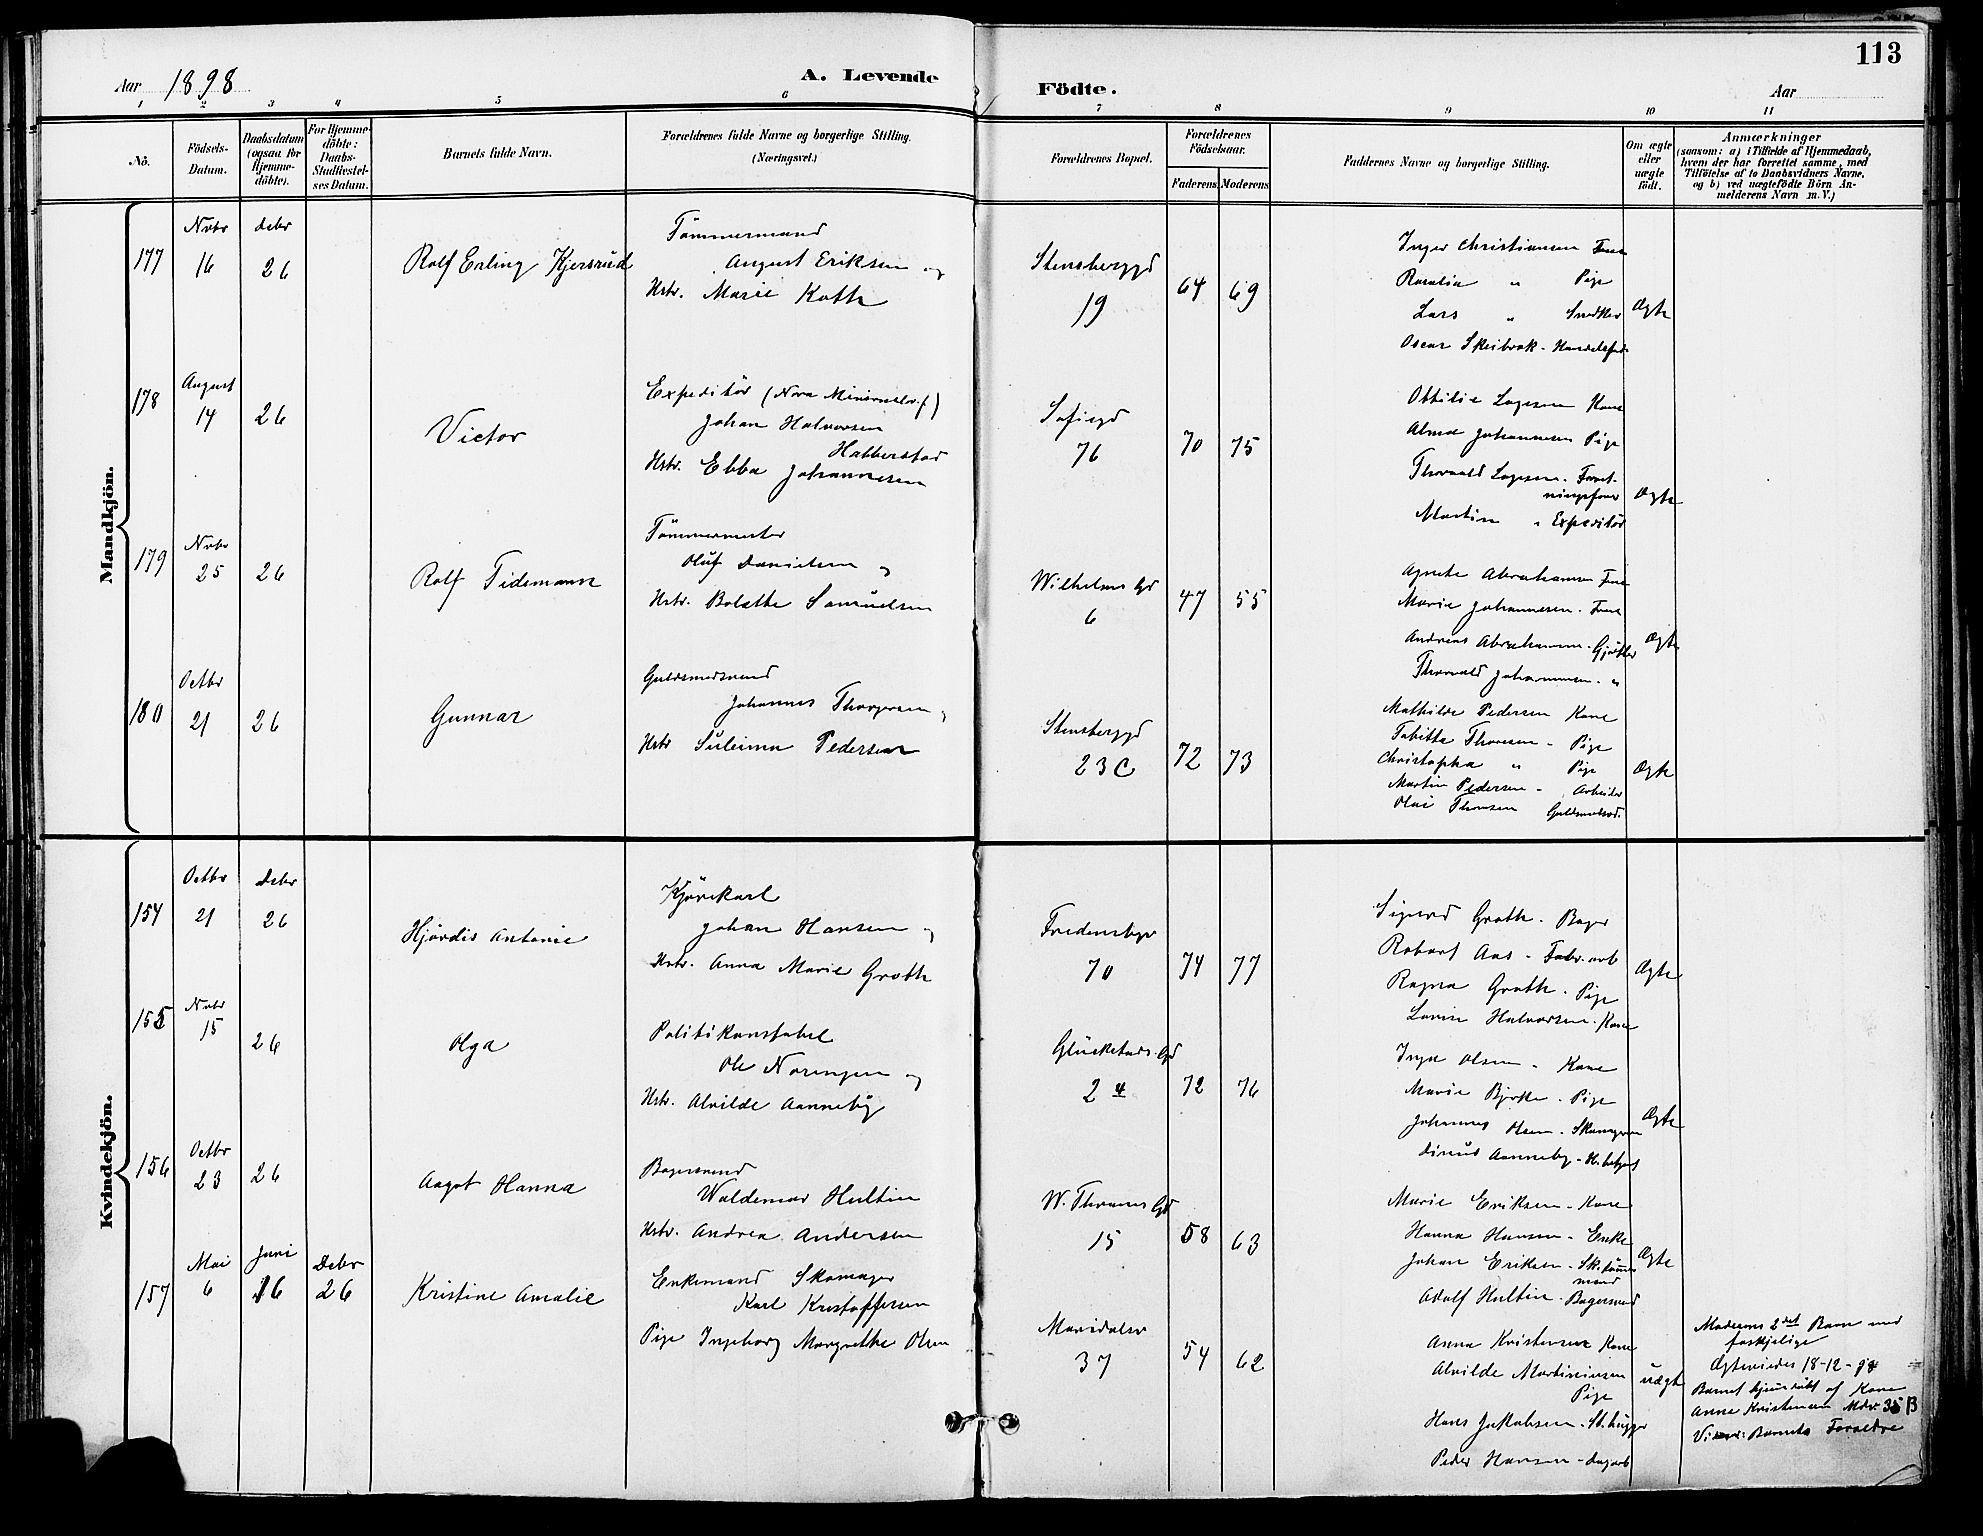 113
Aar 1898
A. Levende
Födte.
Aar
1 2 3 4 5 6 7 8 9 10 11
Nô.
Födsels-Datum.
Daabsdatum (ogsaa for Hjemme-döbte).
For Hjemme-döbte: Daabs-Stadfæstel-ses Datum.
Barnets fulde Navn.
Forældrenes fulde Navne og borgerlige Stilling.
(Næringsvei.)
Forældrenes Bopæl.
Forældrenes Födselsaar.
Faderens Moderens
Faddernes Navne og borgerlige Stilling.
Om ægte eller uægte födt.
Anmærkninger
(saasom: a) i Tilfælde af Hjemmedaab,
hvem der har forrettet samme, med
Tilföielse af to Daabsvidners Navne.
og b) ved uægtefödte Börn An-
melderens Navn m. V.)
Mandkjön.
177 Novbr 16 Debr 26
Rolf Erling Kjersrud
Tömmermand
August Eriksen og
Hstr. Marie Koth
Stensberggd
19
64 69
Inger Christiansen Frue
Rosalia " Pige
Lars " Snedker
Oscar Skeibrok - Handelsf.
Ægte
178 August 14 26
Victor
Expeditör (Nora Mineralv. f)
Johan Halvorsen
Habberstad
Hstr. Ebba Johannesen
Sofiegd
76
70 75
Ottilie Lagesen Kone
Alma Johannesen Pige
Thorvald Lagesen - Forret-
ningsförer
Martin " Expeditör
Ægte
179 Novbr 25 26
Rolf Tidemann
Tömmermester
Oluf Danielsen og
Hstr. Bolette Samuelsen
Wilhelms Gd
6
47 55
Agnete Abrahamsen Frue
Marie Johannesen - Frue
Andreas Abrahamsen - Gjörtler
Thorvald Johannesen - "
Ægte
180 Octbr 21 26
Gunnar
Guldsmedsvend
Johannes Thoresen og
Hstr Suleima Pedersen
Stensberggd
23 C
72 73
Mathilde Pedersen Kone
Tabitta Thoresen - Pige
Christopha " Pige
Martin Pedersen - Arbeider
Olai Thoresen Guldsmedsvd.
Ægte
Kvindekjön.
154 Octbr 21 Debr 26
Hjördis Antonie
Kjörekarl
Johan Hansen og
Hstr. Anna Marie Groth
Fredensbgv
70
74 77
Sigurd Groth - Bager
Robert Aas - Fabr. arb
Ragna Groth - Pige
Lovise Halvorsen - Kone
Ægte
155 Novbr 15 26
Olga
Politikonstabel
Ole Norengen og
Hstr. Alvilde Aanneby
Glückstads Gd
2 4
72 76
Inga Olsen - Kone
Marie Bjerke - Pige
Johannes Olsen - Skomager
Dinus Aanneby - H. betjent
Ægte
156 Octbr 23 26
Aagot Hanna
Bagersvend
Waldemar Hultin
Hstr. Andrea Andersen
W. Thranes Gd
15
58 63
Marie Eriksen - Kone
Hanna Hansen - Enke
Johan Eriksen - Sk. tömmer
mand
Adolf Hultin - Bagersvend
Ægte
157 Mai 6 Juni 16 Debr 26
Kristine Amalie
Enkemand Skomager
Karl Kristoffersen
Pige Ingeborg Margrethe Olsen
Maridalsv
37
54 62
Anna Kristensen Kone
Alvilde Martiniusen
Pige
Hans Jakobsen - St. hugger
Peder Hansen - Dagarb
uægte
Moderens 2det Barn med
forskjelige
Ægteviedes 18-12-98
Barnet hjemmedöbt af Kone
Anna Kristensen Mdv 35 B
Vidner: Barnets Forældre